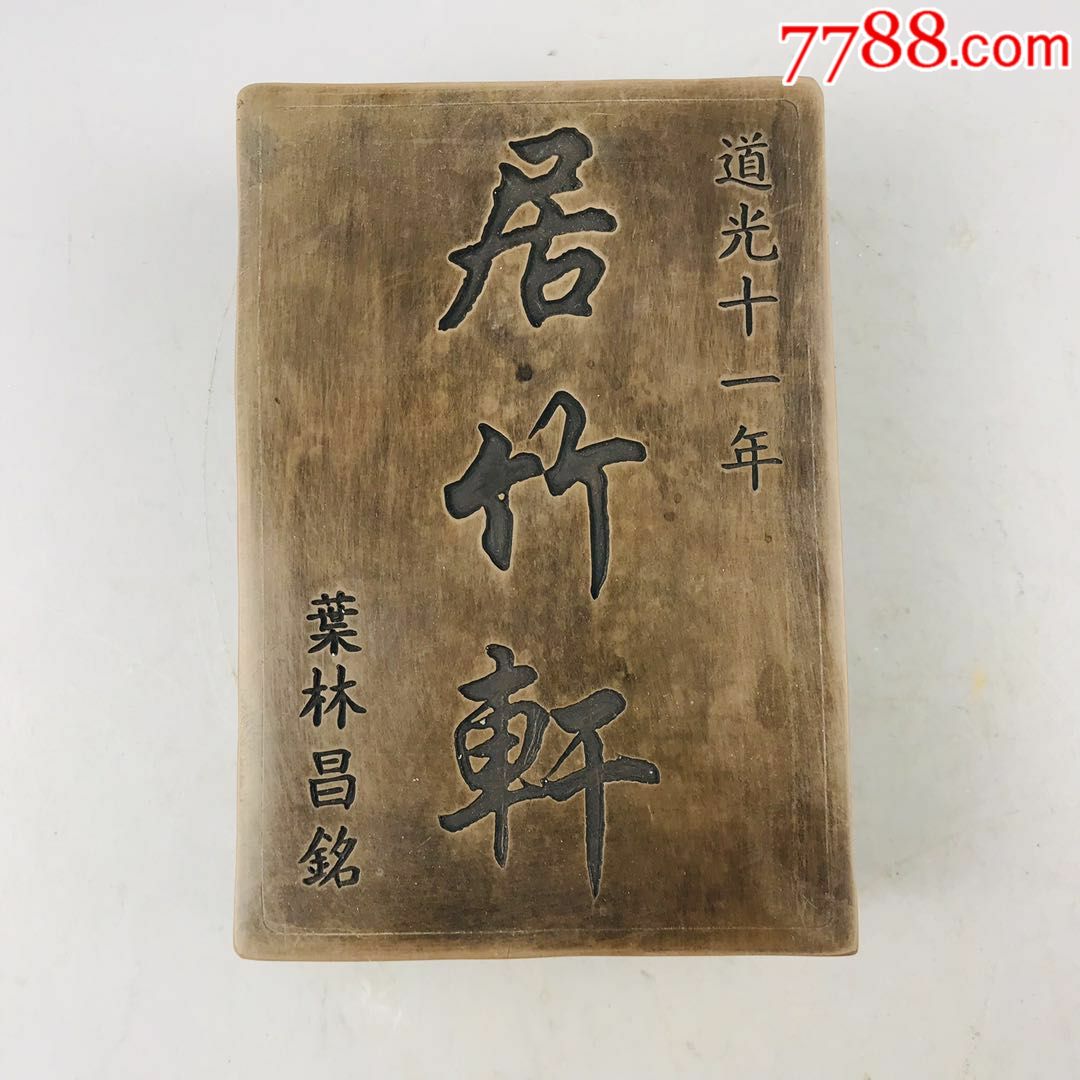 7788.com
道光十一年
居竹軒
葉林昌銘